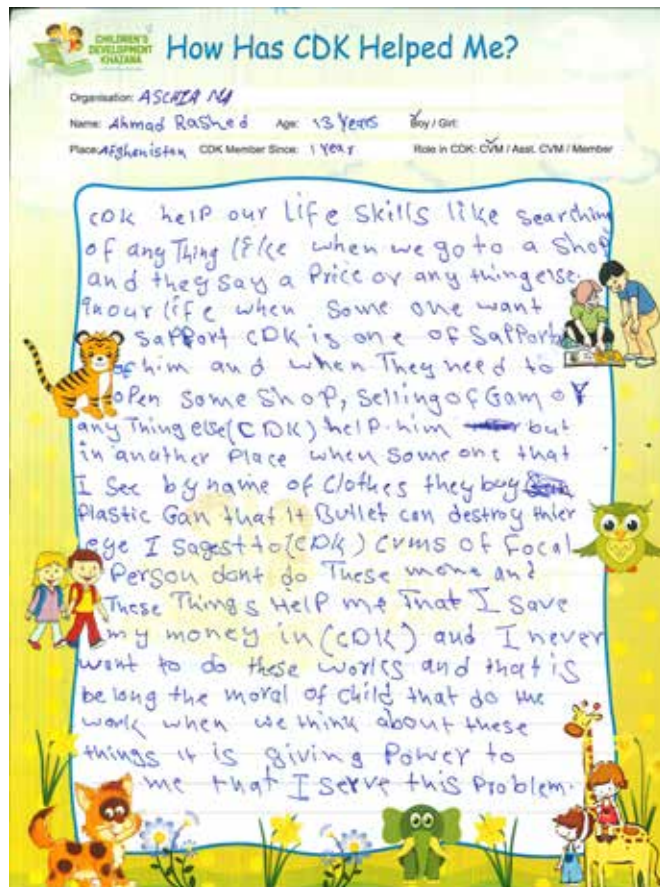 CHILDREN'S
DEVELOPMENT
KHAZANA
How Has CDK Helped Me?
Organisation: ASCHIA NA
Name: Ahmad Rasheed Age: 13 Years Boy / Girl:
Place: Afghanistan CDK Member Since: 1 Year Role in CDK: CVM / Asst. CVM / Member
CDK help our life skills like searching
of any Thing like when we go to a Shop
and they say a Price or any thing else.
in our life when some one want
Sapport CDK is one of Sapport
him and when They need to
open some shop, selling of Gam or
any Thing else (CDK) help him but
in another Place when some one that
I see by name of clothes they buy
Plastic Gan that it Bullet can destroy thier
eye I sagest to (CDK) CVMs of Focal
Person dont do These more and
These Things Help me That I save
my money in (CDK) and I never
want to do these works and that is
belong the moral of child that do the
work when we think about these
things it is giving Power to
me that I serve this Problem.